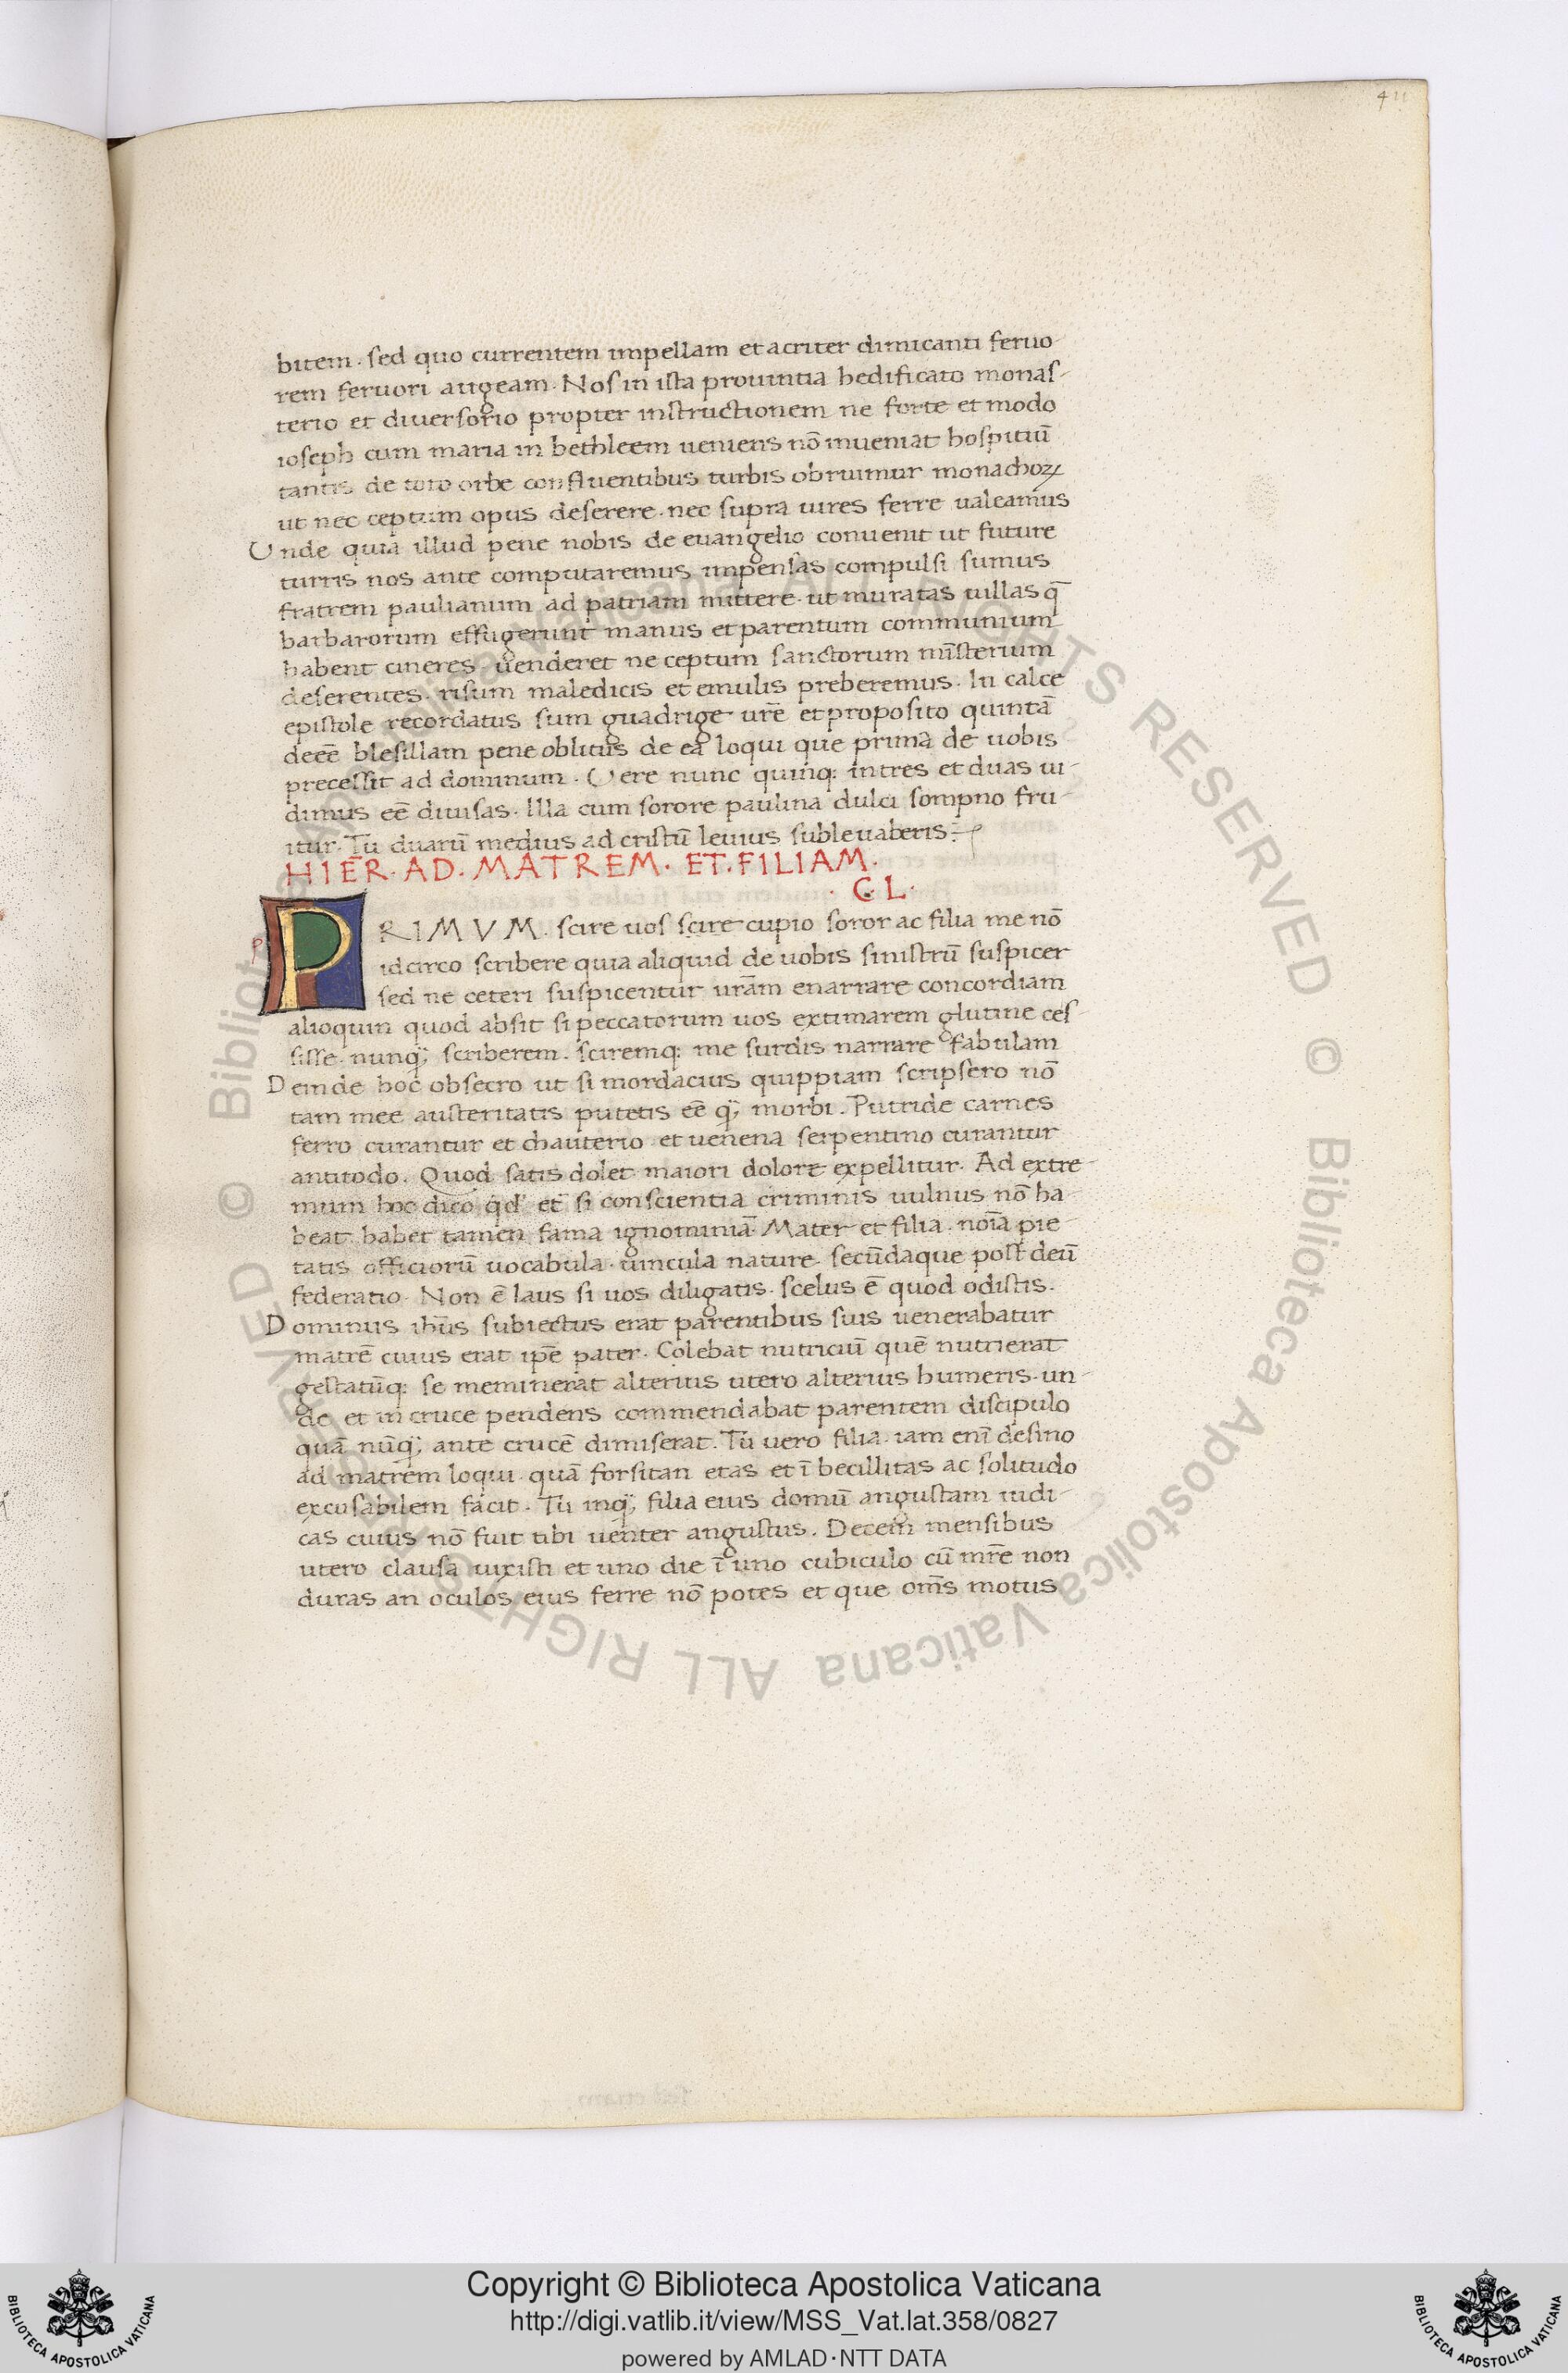 411
bitem. sed quo currentem impellam et acriter dimicanti feruo
rem feruori augeam. Nos in ista prouintia hedificato monas-
terio et diuersorio propter instructionem ne forte et modo
ioseph cum maria in bethleem ueniens nō inueniat hospitiū
tantis de toto orbe confluentibus turbis obruimur monachoꝝ
ut nec ceptum opus deserere. nec supra uires ferre ualeamus
Unde quia illud pene nobis de euangelio conuenit ut future
turris nos ante computaremus impensas compulsi sumus
fratrem paulianum ad patriam mittere. ut muratas uillas q̄
barbarorum effugerunt manus et parentum communium
habent cineres uenderet ne ceptum sanctorum mīsterium
deserentes. risum maledicis et emulis preberemus. In calce
epistole recordatus sum quadrige urē et proposito quintā
deeē blesillam pene oblitus de ea loqui que prima de uobis
precessit ad dominum. Uere nunc quinq: in tres et duas ui-
dimus eē diuisas. Illa cum sorore paulina dulci sompno fru-
itur. Tu duarū medius ad cristū leuius subleuaberis:
HIER. AD. MATREM. ET. FILIAM.
. C. L.
P
PRIMVM. scire uos scire cupio soror ac filia me nō
idcirco scribere quia aliquid de uobis sinistrū suspicer
sed ne ceteri suspicentur urām enarrare concordiam
alioquin quod absit si peccatorum uos extimarem glutine ces-
sisse. nunqꝫ scriberem. sciremq: me surdis narrare fabulam
Deinde hoc obsecro ut si mordacius quippiam scripsero nō
tam mee austeritatis putetis eē qꝫ morbi. Putride carnes
ferro curantur et chauterio et uenena serpentino curantur
antitodo. Quod satis dolet maiori dolore expellitur. Ad extre-
mum hoc dico qd' et si conscientia criminis uulnus nō ha-
beat. habet tamen fama ignominiā. Mater et filia. noīa pie-
tatis officiorū uocabula. uincula nature. secūdaque post deū
federatio. Non ē laus si uos diligatis. scelus ē quod odistis.
Dominus ihūs subiectus erat parentibus suis uenerabatur
matrē cuius erat ipē pater. Colebat nutriciū quē nutrierat
gestatūq: se meminerat alterius utero alterius humeris. un-
de et in cruce pendens commendabat parentem discipulo
quā nūqꝫ ante crucē dimiserat. Tu uero filia. iam enī desino
ad matrem loqui. quā forsitan etas et ī becillitas ac solitudo
excusabilem facit. Tu inqꝫ filia eius domū angustam iudi-
cas cuius nō fuit tibi uenter angustus. Decem mensibus
utero clausa uixisti et uno die ī uno cubiculo cū mrē non
duras an oculos eius ferre nō potes et que om̄s motus
© Biblioteca Apostolica Vaticana ALL RIGHTS RESERVED © Biblioteca Apostolica Vaticana ALL RIGHTS RESERVED
Copyright © Biblioteca Apostolica Vaticana
http://digi.vatlib.it/view/MSS_Vat.lat.358/0827
powered by AMLAD·NTT DATA
BIBLIOTECA APOSTOLICA VATICANA
BIBLIOTECA APOSTOLICA VATICANA